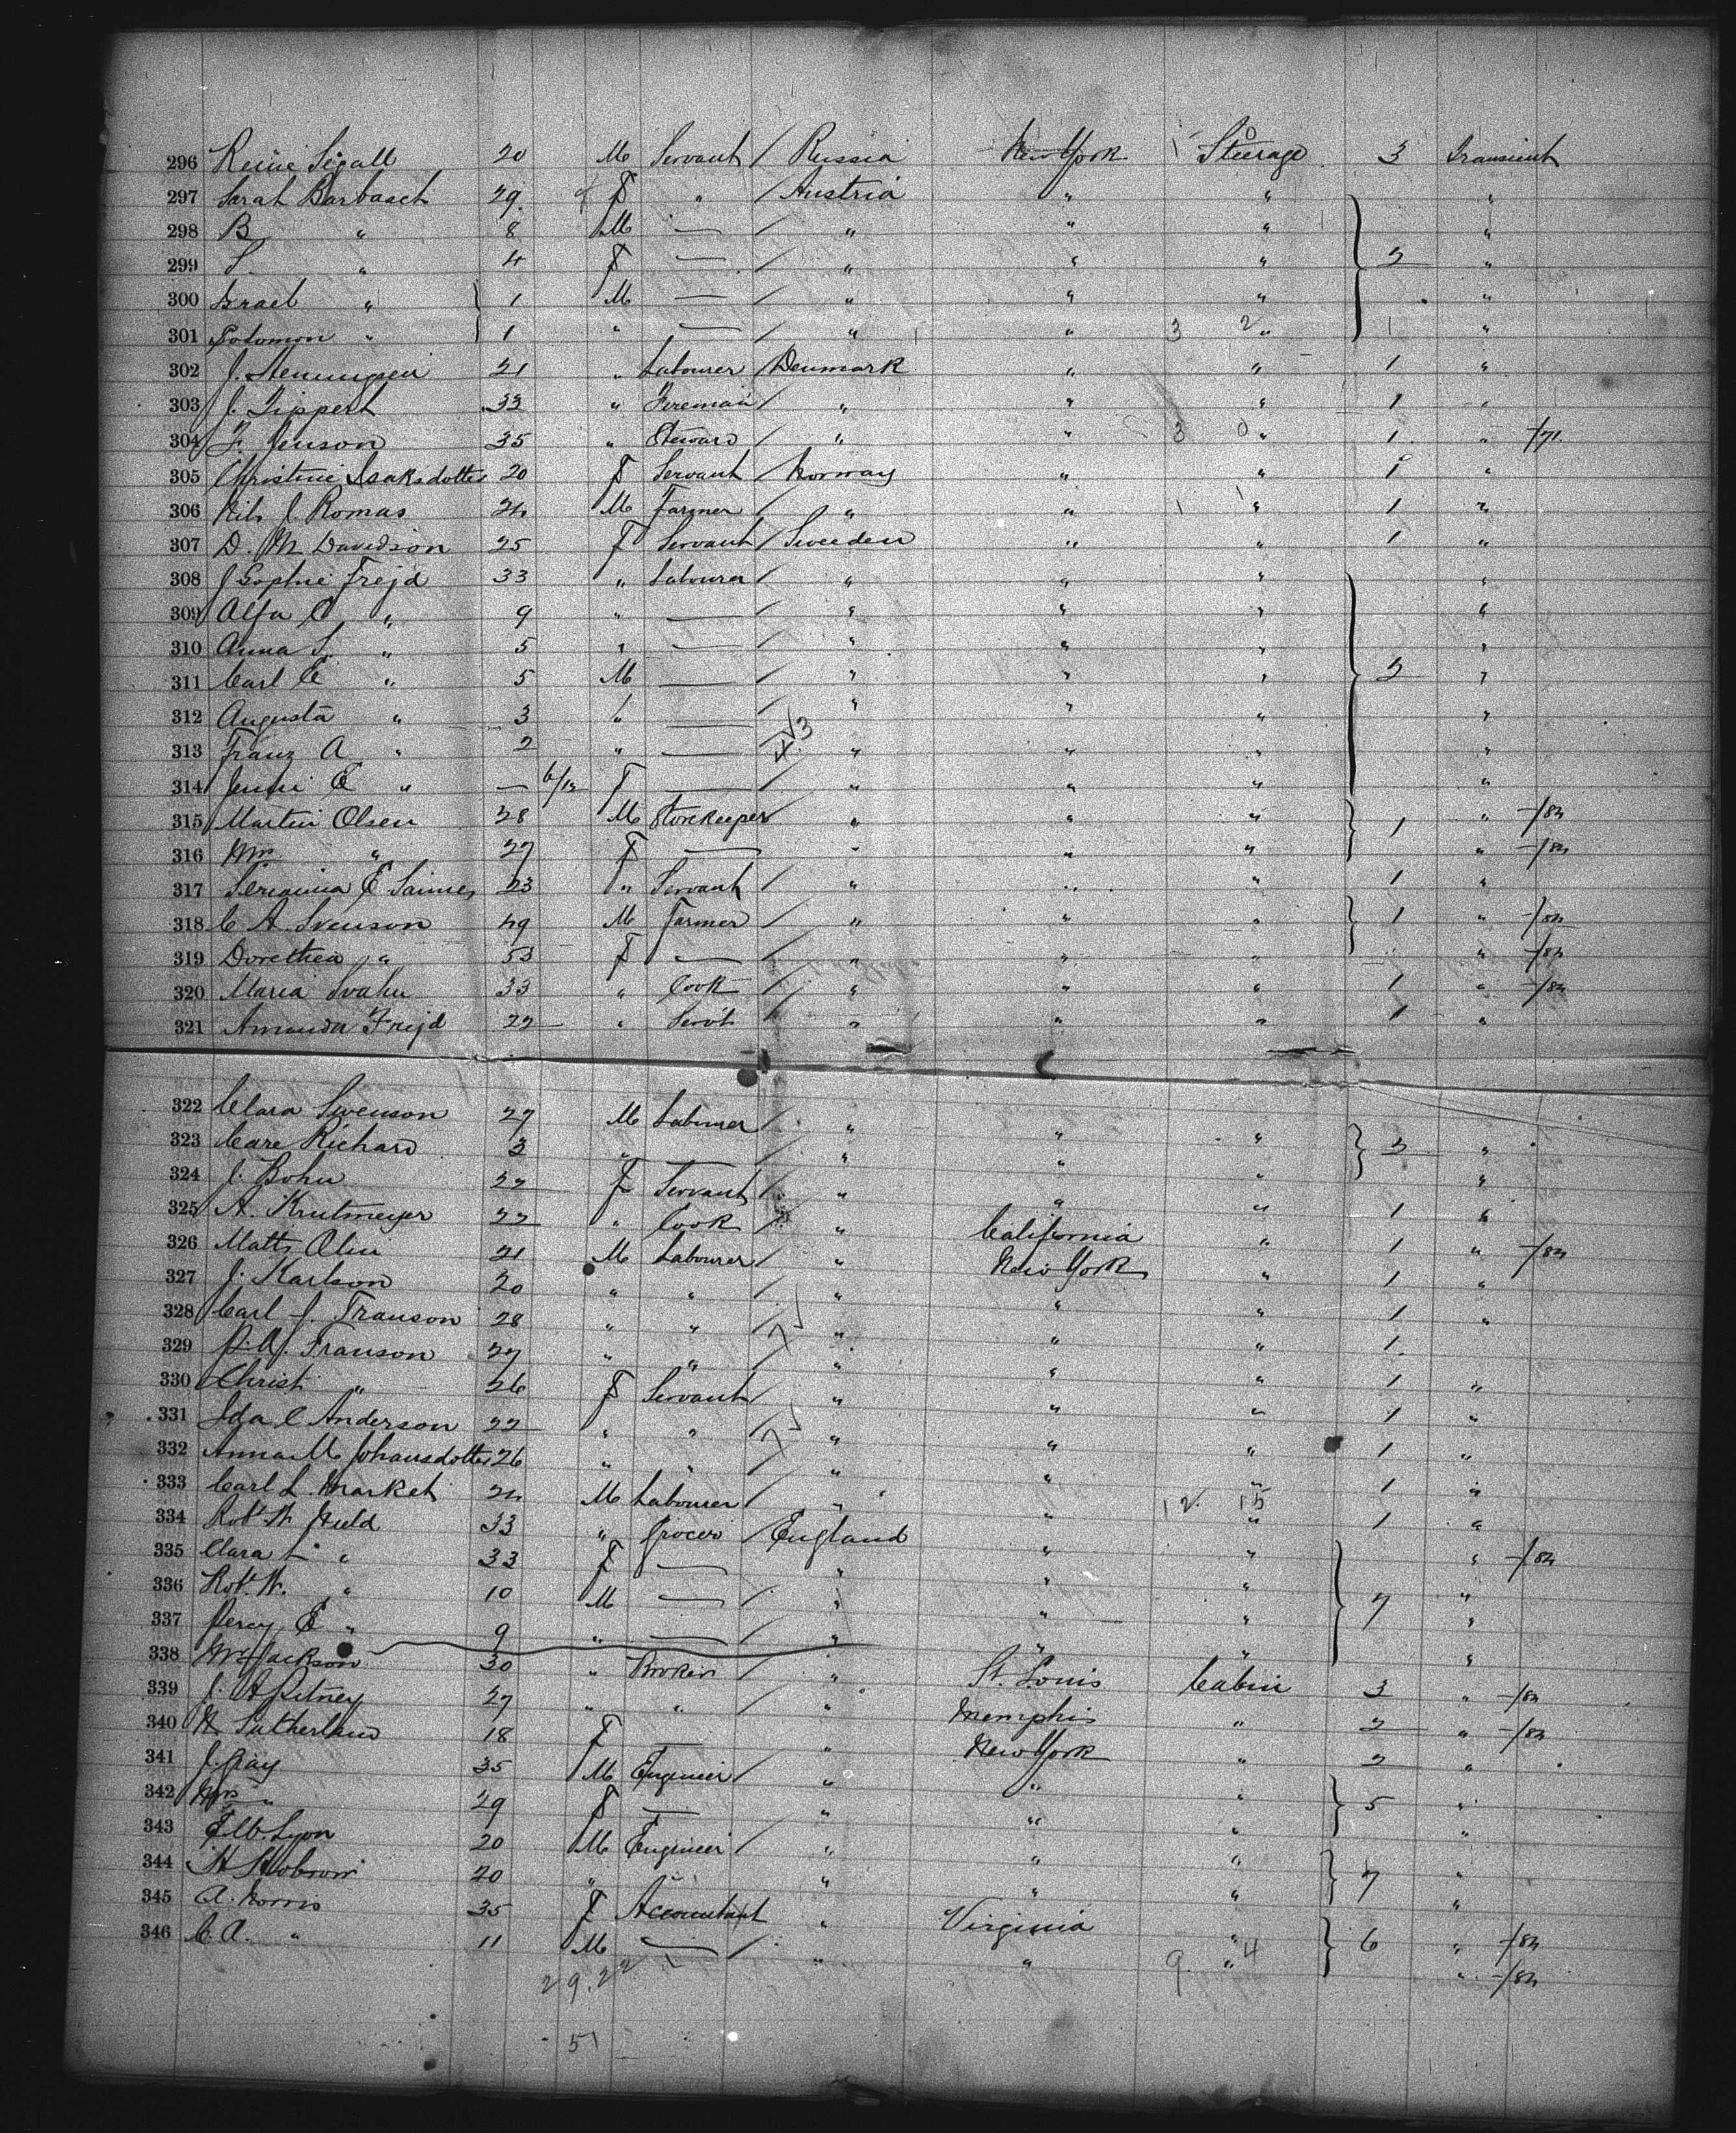 296 Reine Sigall 20 M Servant / Russia New York 1 Steerage 0 3 Transient
297 Sarah Barbasch 29. F " / Austria " " "
298 B " 8 M — / " " " "
299 S. " 4 F — / " " " 2 "
300 Israel " 1 M — / " " " "
301 Solomon " 1 " — / " " 3 2 " 1 "
302 J. 21 " Labourer / Denmark " " 1 "
303 J. Tippert 33 " Fireman / " " " 1 "
304 F. Jenson 35 " Steward / " " 3 0 " 1 " /71.
305 Christine Isaksdotter 20 F Servant / Norway " " 1 "
306 Nils J. Romas 24 M Farmer / " " 1 1 " 1 "
307 D. M Davidson 25 F Servant / Sweeden " " 1 "
308 J Sophie Frejd 33 " Labourer / " " " "
309 Alfa C " 9 " — / " " " "
310 Anna S. " 5 " — / " " " "
311 Carl E " 5 M — / " " " 2 "
312 Augusta " 3 " — / " " " "
313 Franz A " 2 " — " " " "
314 Jenni E " — 6/12 F — / " " " "
315 Martin Olsen 28 M Storekeeper / " " " 1 " /82
316 Mrs " 27 F — " " " " /82
317 E 23 " Servant / " " " 1 "
318 C A. Svenson 49 M Farmer / " " " 1 " /82
319 Dorethea " 53 F — / " " " " /82
320 Maria Svahn 33 " Cook / " " " 1 " /82
321 Amanda Frejd 22 " Servt / " " " 1 "
322 Clara Swenson 27 M Labourer / " " " "
323 Richard 3 " — " " " 2 "
324 J. Bohn 22 F Servant / " " " "
325 A. Krutmeyer 22 " Cook / " California " 1 "
326 Matts Olin 21 M Labourer / " New York " 1 " /82
327 J. Karlson 20 " " / " " " 1 "
328 Carl J. Franson 28 " " / " " " 1 "
329 Franson 27 " " / " " " 1.
330 Christ " 26 F Servant / " " " 1 "
331 Ida C Anderson 22 " " / " " " 1 "
332 Anna M Johansdotter 26 " " / " " " 1 "
333 Carl L. Market 24 M Labourer / " " 12 15 " 1 "
334 Robt W. 33 " Grocer / England " " 1 "
335 Clara L " 33 F — " " " " /82
336 Robt. W. " 10 M — / " " " 7 "
337 Percy E " 9 " — / " " " "
338 Wm Jackson 30 " Broker / " St. Louis Cabin 3 " /82
339 J. A Pitney 27 " " / " Memphis " 2 " /82
340 Sutherland 18 F — " New York " 2 "
341 J. Gay 35 M Engineer / " " " 5 "
342 Mrs " 29 F — " " " "
343 Lyon 20 M Engineer / " " " "
344 20 " " " " " 7 "
345 A. Norris 35 F Accountant " Virginia " " /82
346 C. A. " 11 M — / " " 9. " 4 6 " /82
29.22
51